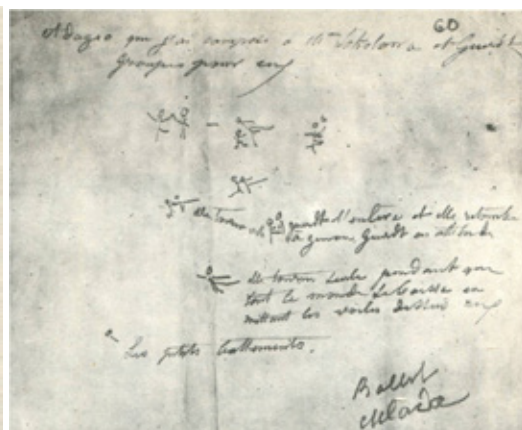 60
Adagio que j'ai composé a Mme Sokolowa et Guerdt
Groupes pour eux
elle tourne et Guerdt l'enlève et elle retombe
à genoux Guerdt en attitude
elle tourne seule pendant que
tout le monde se baisse en
mettant les voiles dessus eux
Les petits battements.
Ballet
Mlada